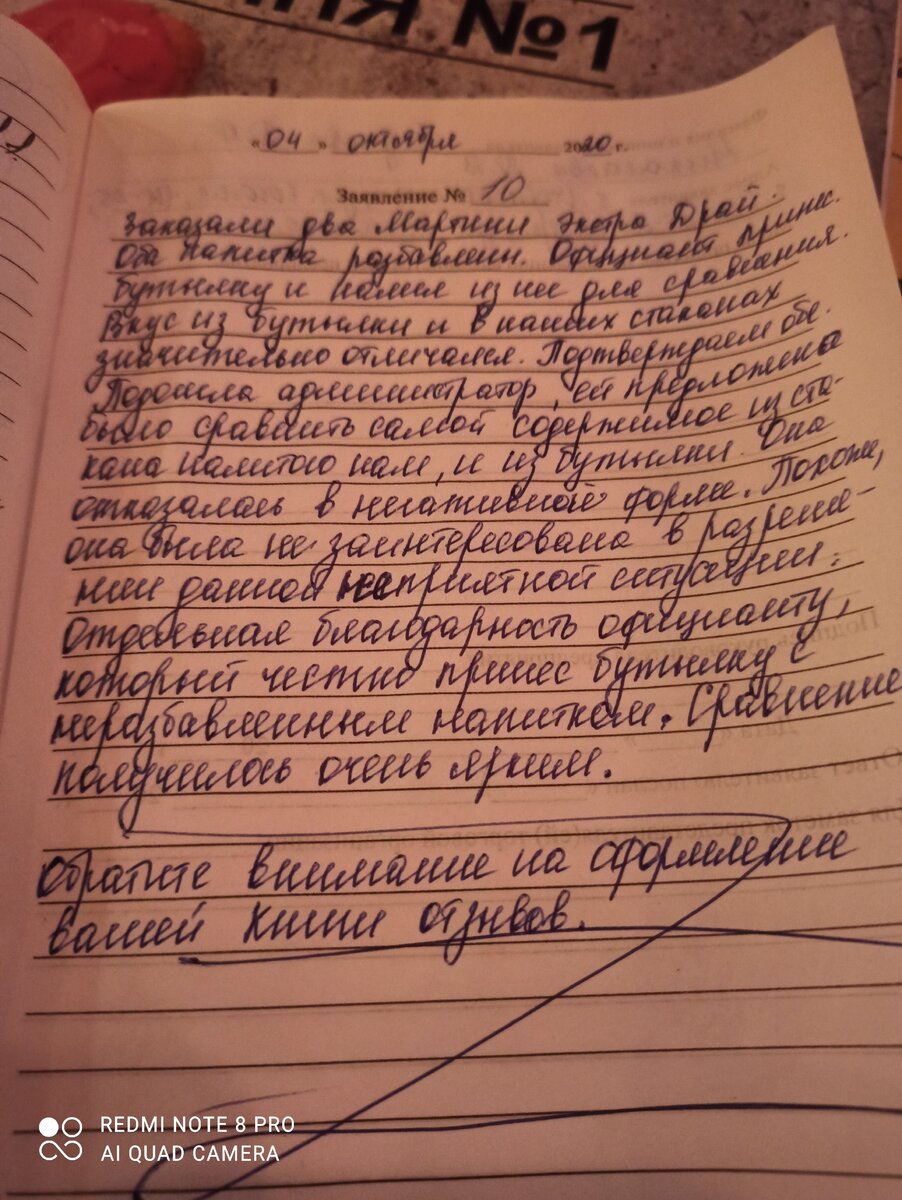 ИЯ №1
«04» октября 2020 г.
Заявление № 10
Заказали два Мартини Экстра Драй.
Оба напитка разбавлены. Официант принес
бутылку и налил из нее для сравнения.
Вкус из бутылки и в наших стаканах
значительно отличался. Подтверждаем обе.
Подошла администратор, ей предложено
было сравнить самой содержимое из ста-
кана налитого нам, и из бутылки. Она
отказалась в негативной форме. Похоже,
она была не заинтересована в разреше-
нии данной неприятной ситуации.
Отдельная благодарность официанту,
который честно принес бутылку с
неразбавленным напитком. Сравнение
получилось очень ярким.
Обратите внимание на оформление
вашей книги отзывов.
REDMI NOTE 8 PRO
AI QUAD CAMERA